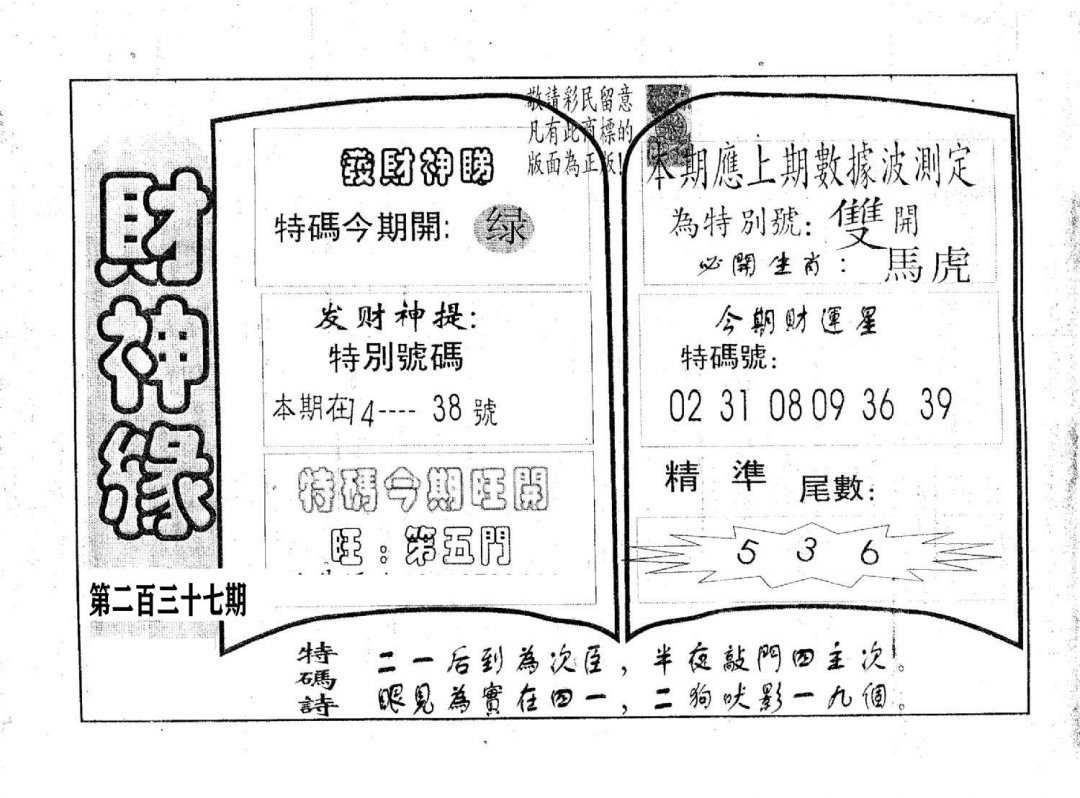 財神緣
第二百三十七期
敬請彩民留意
凡有此商標的
版面為正版!
發財神睇
特碼今期開: 绿
发财神提:
特別號碼
本期在14---- 38號
特碼今期旺開
旺:第五門
本期應上期數據波測定
為特別號: 雙開
必開生肖: 馬虎
今期財運星
特碼號:
02 31 08 09 36 39
精準 尾數:
5 3 6
特碼詩
二一后到為次臣,半夜敲門四主次。
眼見為實在四一,二狗吠影一九個。